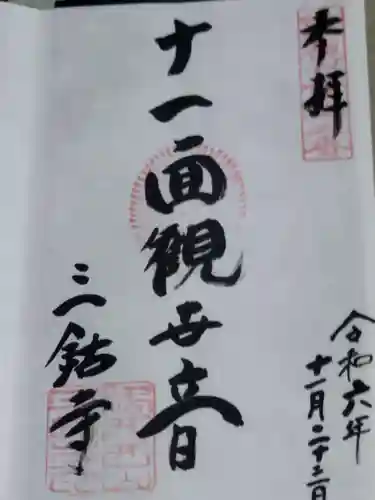 奉拝
令和六年
十一月二十二日
十一面観世音
三鈷寺